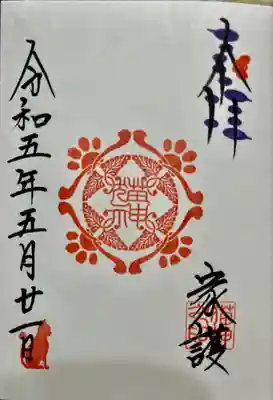 奉拝
家護
猫神
令和五年五月廿一日